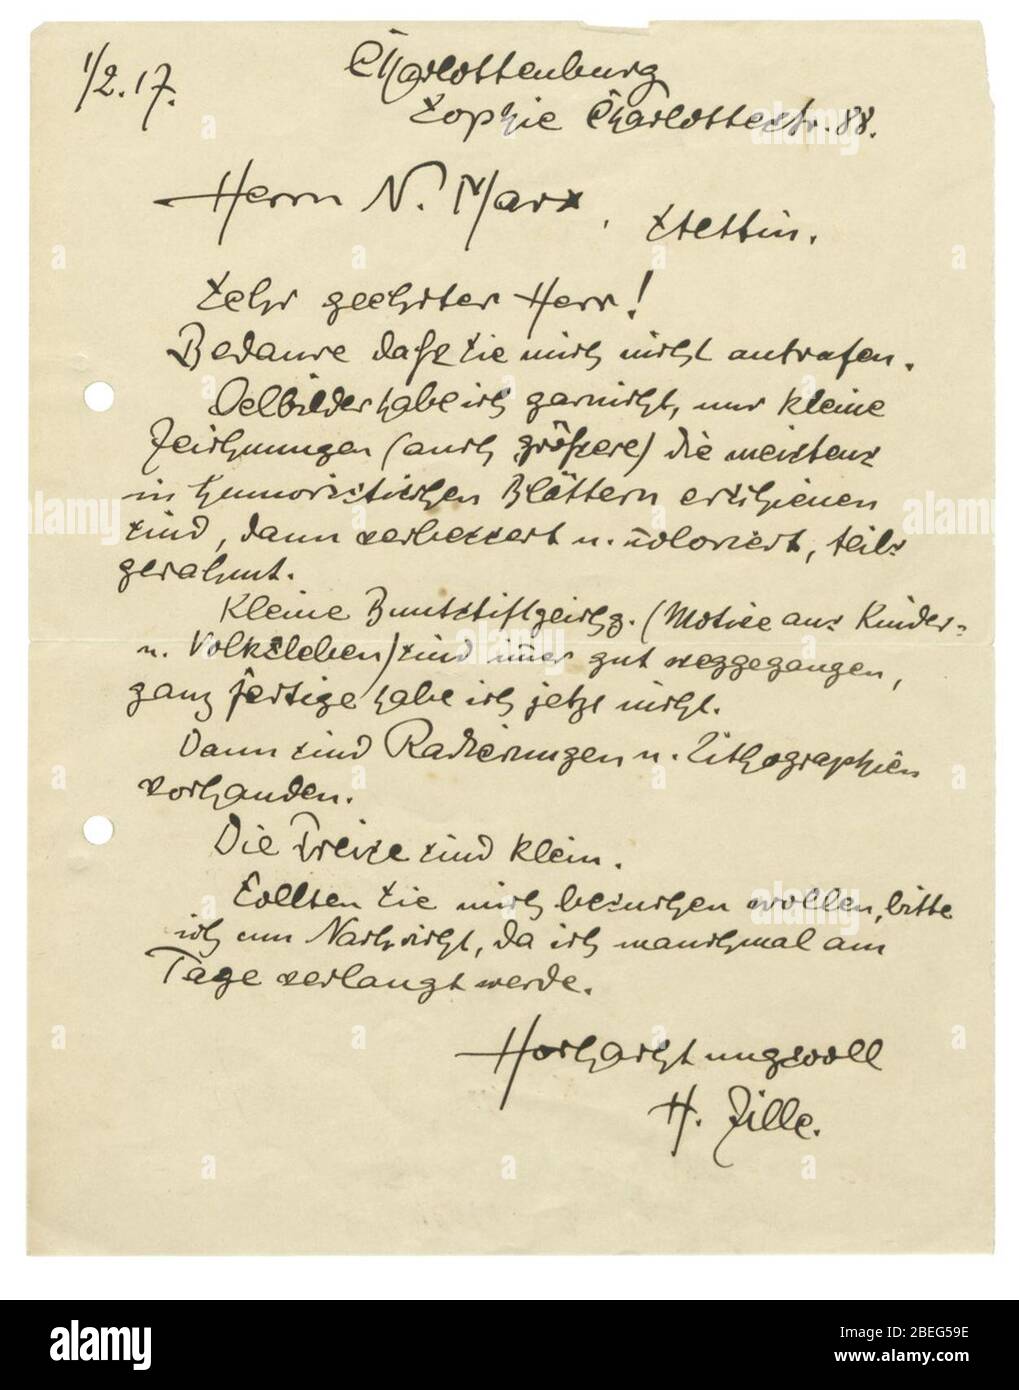 1/2.17.
Charlottenburg
Sophie Charlottestr. 88.
Herrn N. Marx, Stettin.
Sehr geehrter Herr!
Bedaure daß Sie mich nicht antrafen.
Oelbilder habe ich garnicht, nur kleine
Zeichnungen (auch größere) die meistens
in humoristischen Blättern erschienen
sind, dann verbessert u. coloriert, teils
gerahmt.
Kleine Buntstiftzeichg. (Motive aus Kinder-
u. Volksleben) sind im̅er gut weggegangen,
ganz fertige habe ich jetzt nicht.
Dann sind Radierungen u. Lithographien
vorhanden.
Die Preise sind klein.
Sollten Sie mich besuchen wollen, bitte
ich um Nachricht, da ich manchmal am
Tage verlangt werde.
Hochachtungsvoll
H. Zille.
alamy
Image ID: 2BEG59E
www.alamy.com